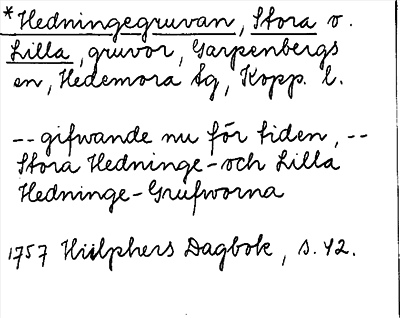 *Hedningegruvan, Stora o.
Lilla, gruvor, Garpenbergs
sn, Hedemora tg, Kopp. l.
-- gifwande nu för tiden, --
Stora Hedninge- och Lilla
Hedninge-Grufworna
1757 Hülphers Dagbok, s. 42.